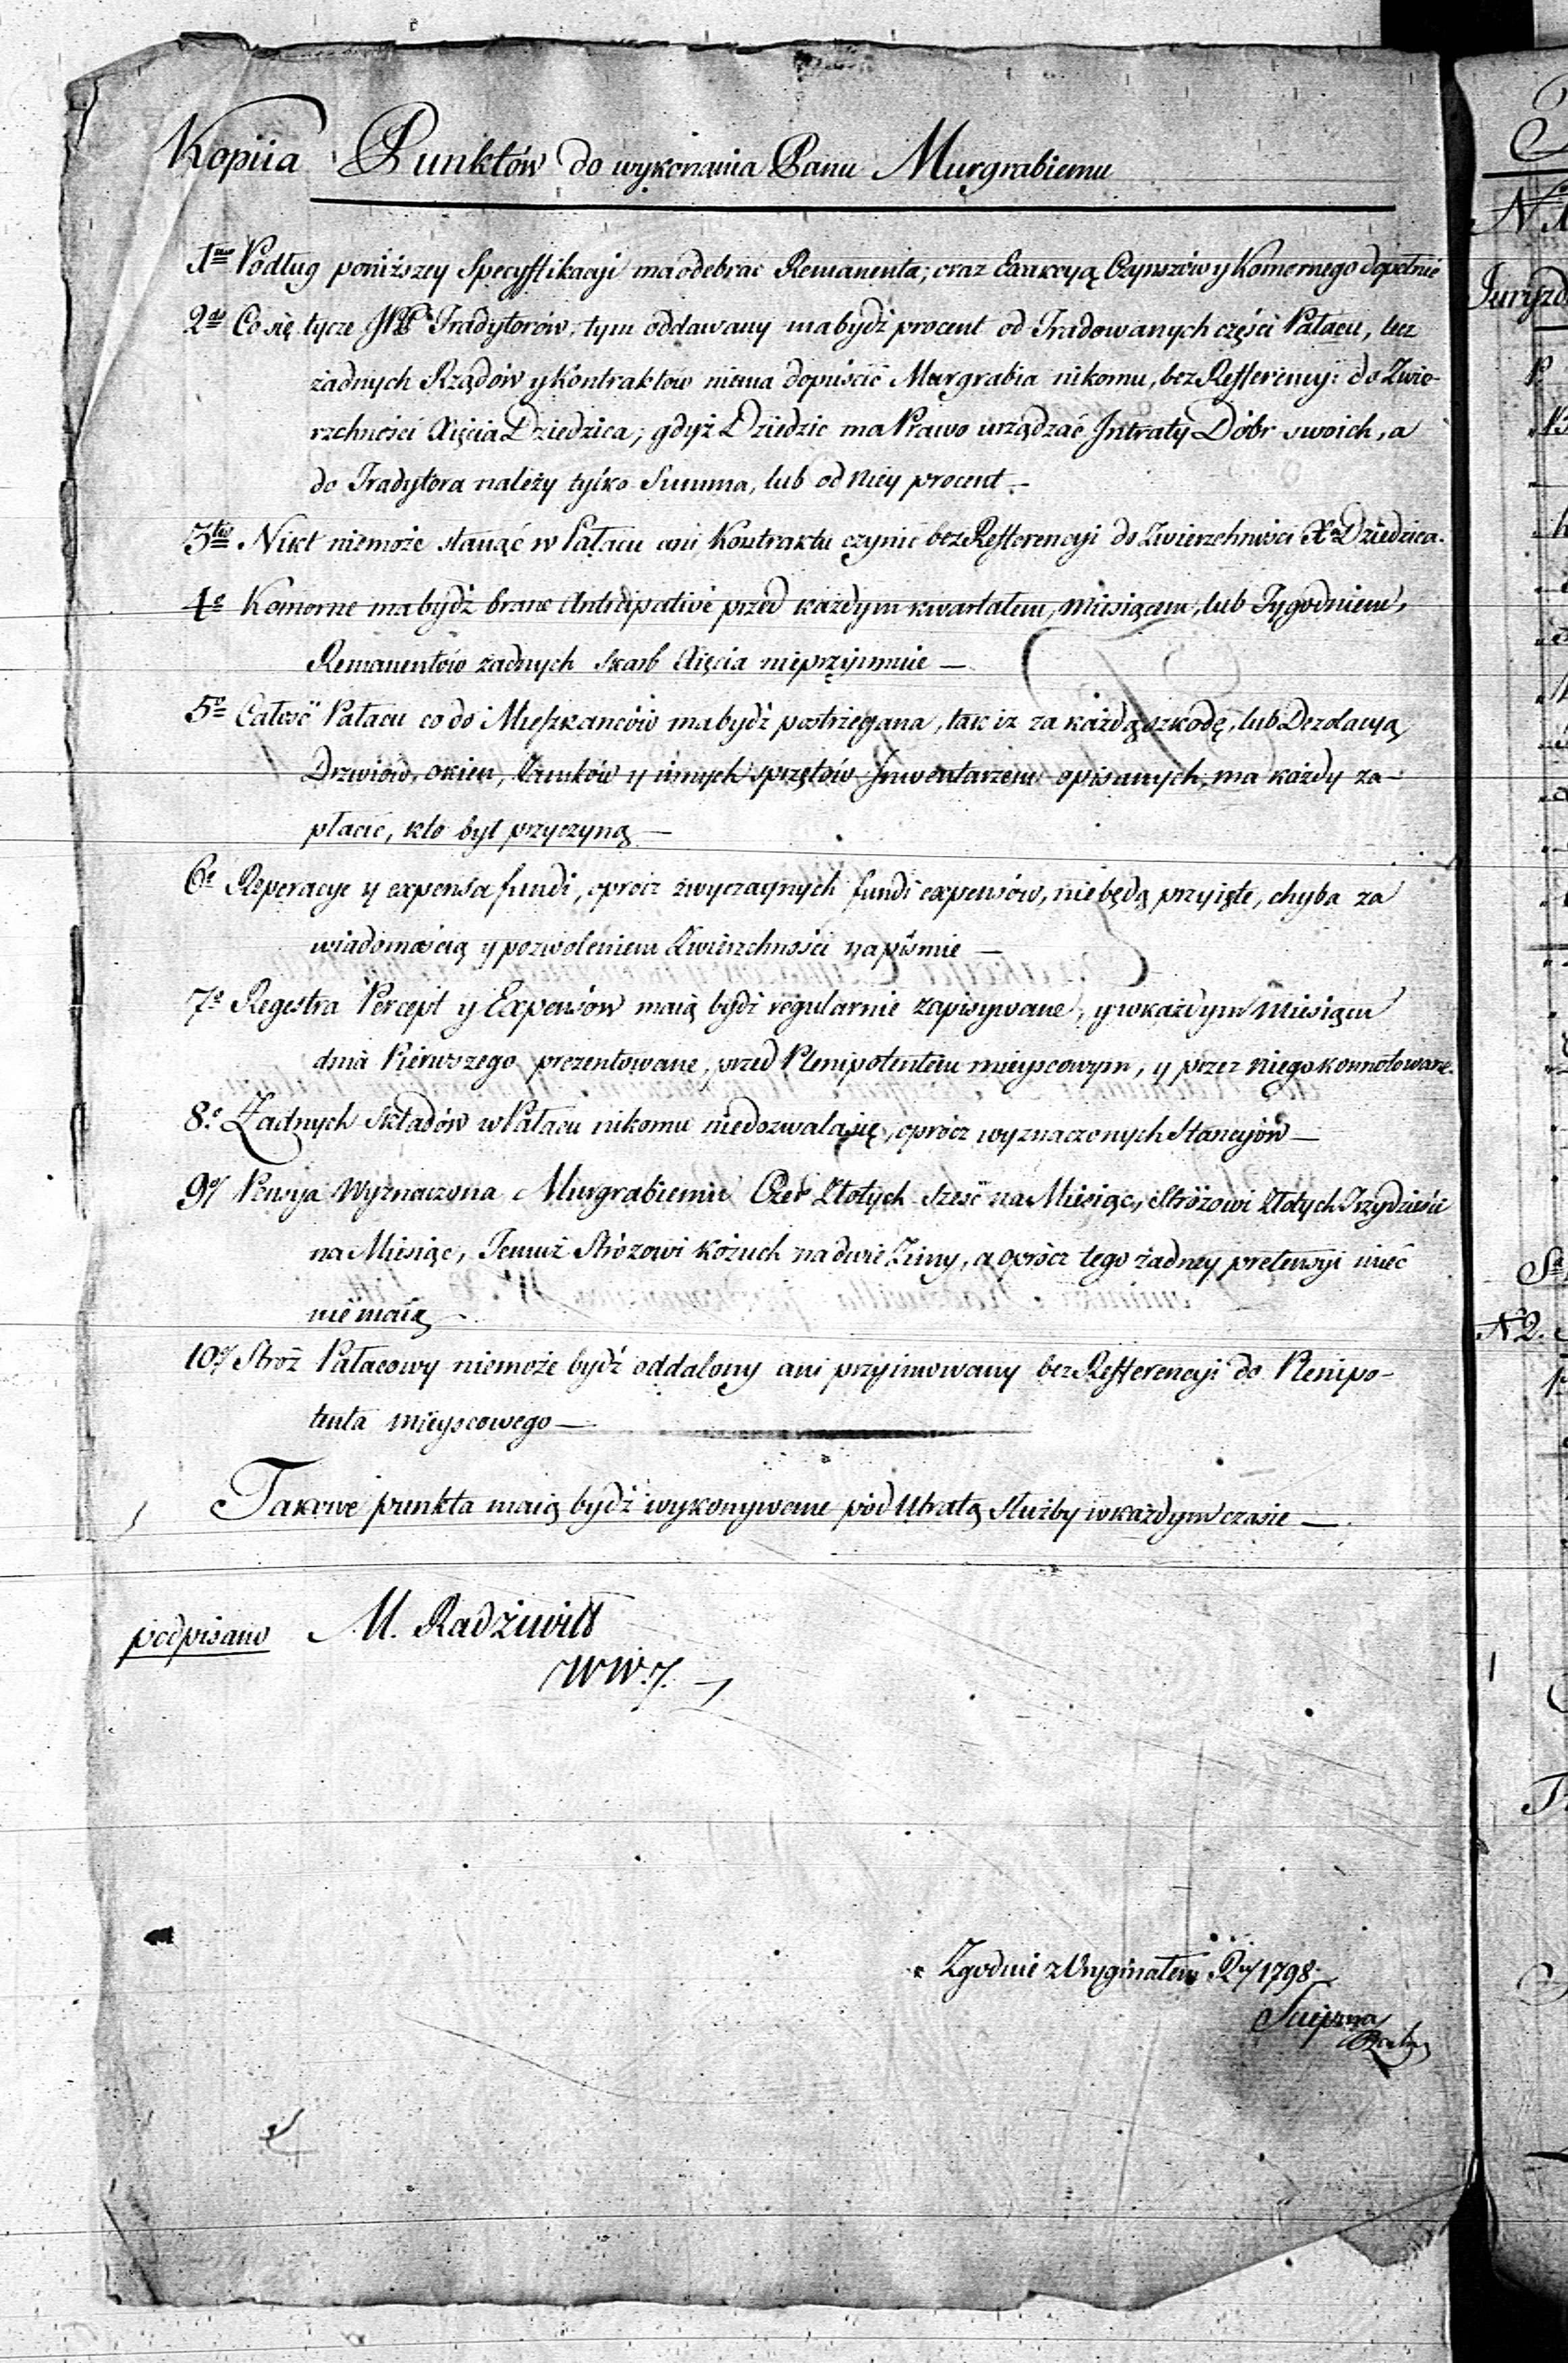 Kopiia Punktów do wykonania Panu Murgrabiemu
1mo Podług poniższey Specyffikacyi ma odebrać Remanenta, oraz Exakcyą Czynszów y Komornego dopełnić
2do Co się tycze JWW Tradytorów, tym oddawany ma bydź procent od Tradowanych części Pałacu, lecz
żadnych Rządów y Kontraktów niema dopuścić Murgrabia nikomu, bez Refferencyi do Zwie-
rzchności Xięcia Dziedzica, gdyż Dziedzic ma Prawo urządzać Intraty Dóbr swoich, a
do Tradytora należy tylko Summa, lub od niey procent —
3tio Nikt niemoże stanąć w Pałacu ani Kontraktu czynić bez Refferencyi do Zwierzchności Xa Dziedzica.
4o Komorne ma bydź brane Anticipative przed każdym kwartałem, miesiącem, lub Tygodniem,
Remanentów żadnych Skarb Xięcia nieprzyimuie —
5o Całość Pałacu co do Mieszkańców ma bydź postrzegana, tak iż za każdą szkodę, lub Dezolacyą
Drzwiów, okien, Zamków y innych sprzętów Inwentarzem opisanych, ma każdy za-
płacić, kto był przyczyną —
6o Reperacye y expensa fundi, oprócz zwyczaynych fundi expensów, nie będą przyięte, chyba za
wiadomością y pozwoleniem Zwierzchności na piśmie —
7o Regestra Percept y Expensów maią bydź regularnie zapisywane, y w każdym Miesiącu
dnia Pierwszego prezentowane, przed Plenipotentem mieyscowym, y przez niego konnotowane.
8o Żadnych Składów w Pałacu nikomu niedozwala się, oprócz wyznaczonych Stancyiów —
9o Pensya Wyznaczona Murgrabiemu Czer Złotych sześć na Miesiąc, Stróżowi Złotych Trzydzieści
na Miesiąc, Temuż Stróżowi Kożuch na dwie Zimy, a oprócz tego żadney pretensyi mieć
nie maią —
10o Stroż Pałacowy niemoże bydź oddalony ani przyimowany bez Refferencyi do Plenipo-
tenta mieyscowego —
Takowe punkta maią bydź wykonywane pod Utratą Służby w każdym czasie —
podpisano M. Radziwiłł
WW.
Zgodnie z Oryginałem R 1798